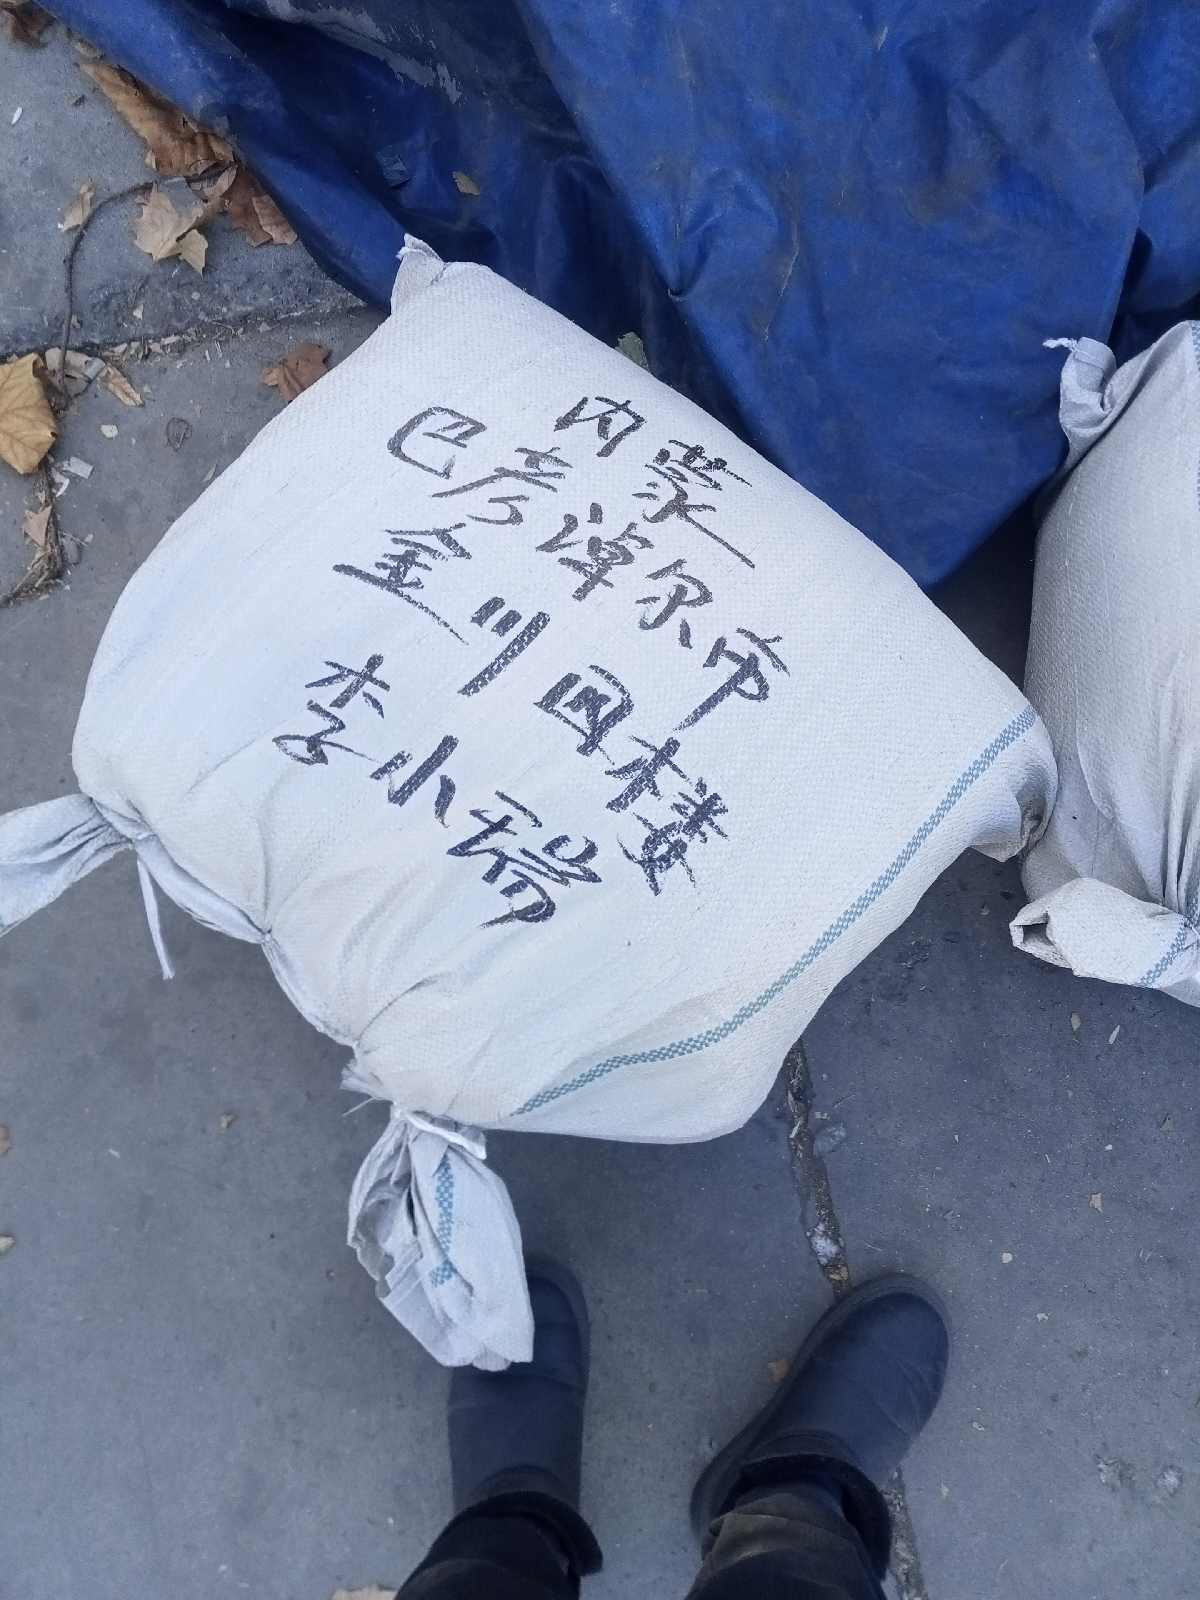 内蒙
巴彦淖尔市
金川园楼
李小瑞